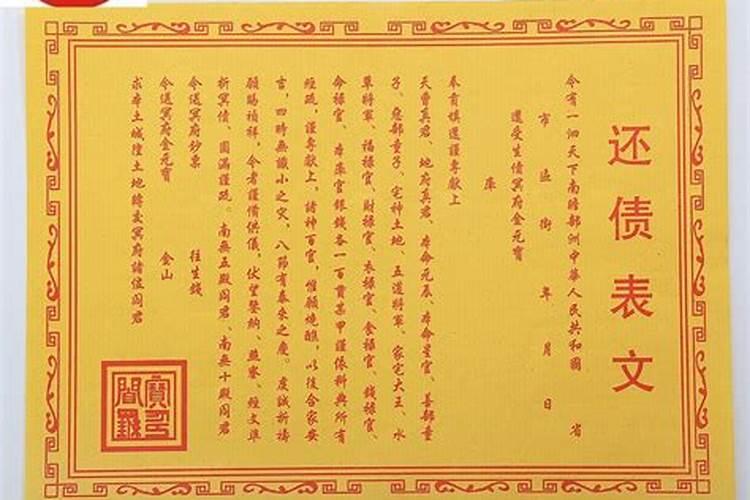 还债表文
今有一泗天下南瞻部洲中華人民共和國 省
市 區 街 年 月 日
還受生債冥府金元寶
庫
奉資填還謹專獻上
天曹真君、地府真君、本命元辰、本命星官、善部童
子、惡部童子、宅神土地、五道將軍、家宅大王、水
草將軍、福祿官、財祿官、衣祿官、食祿官、錢祿官、
命祿官、本庫官銀錢各一百貫某甲謹依科典所有
經疏，謹專獻上，諸神百官，惟願燒醮，以後合家安
吉，四時無識小之災，八節有泰來之慶。虔誠祈禱
願賜禎祥，令者謹備供儀，伏望鑒納、燕寥、經文準
折冥債、圓滿謹疏。南無五殿阎君、南無十殿阎君
令送冥府鈔票 往生錢
令送冥府金元寶 金山
求本土城隍土地轉交冥府諸位阎君